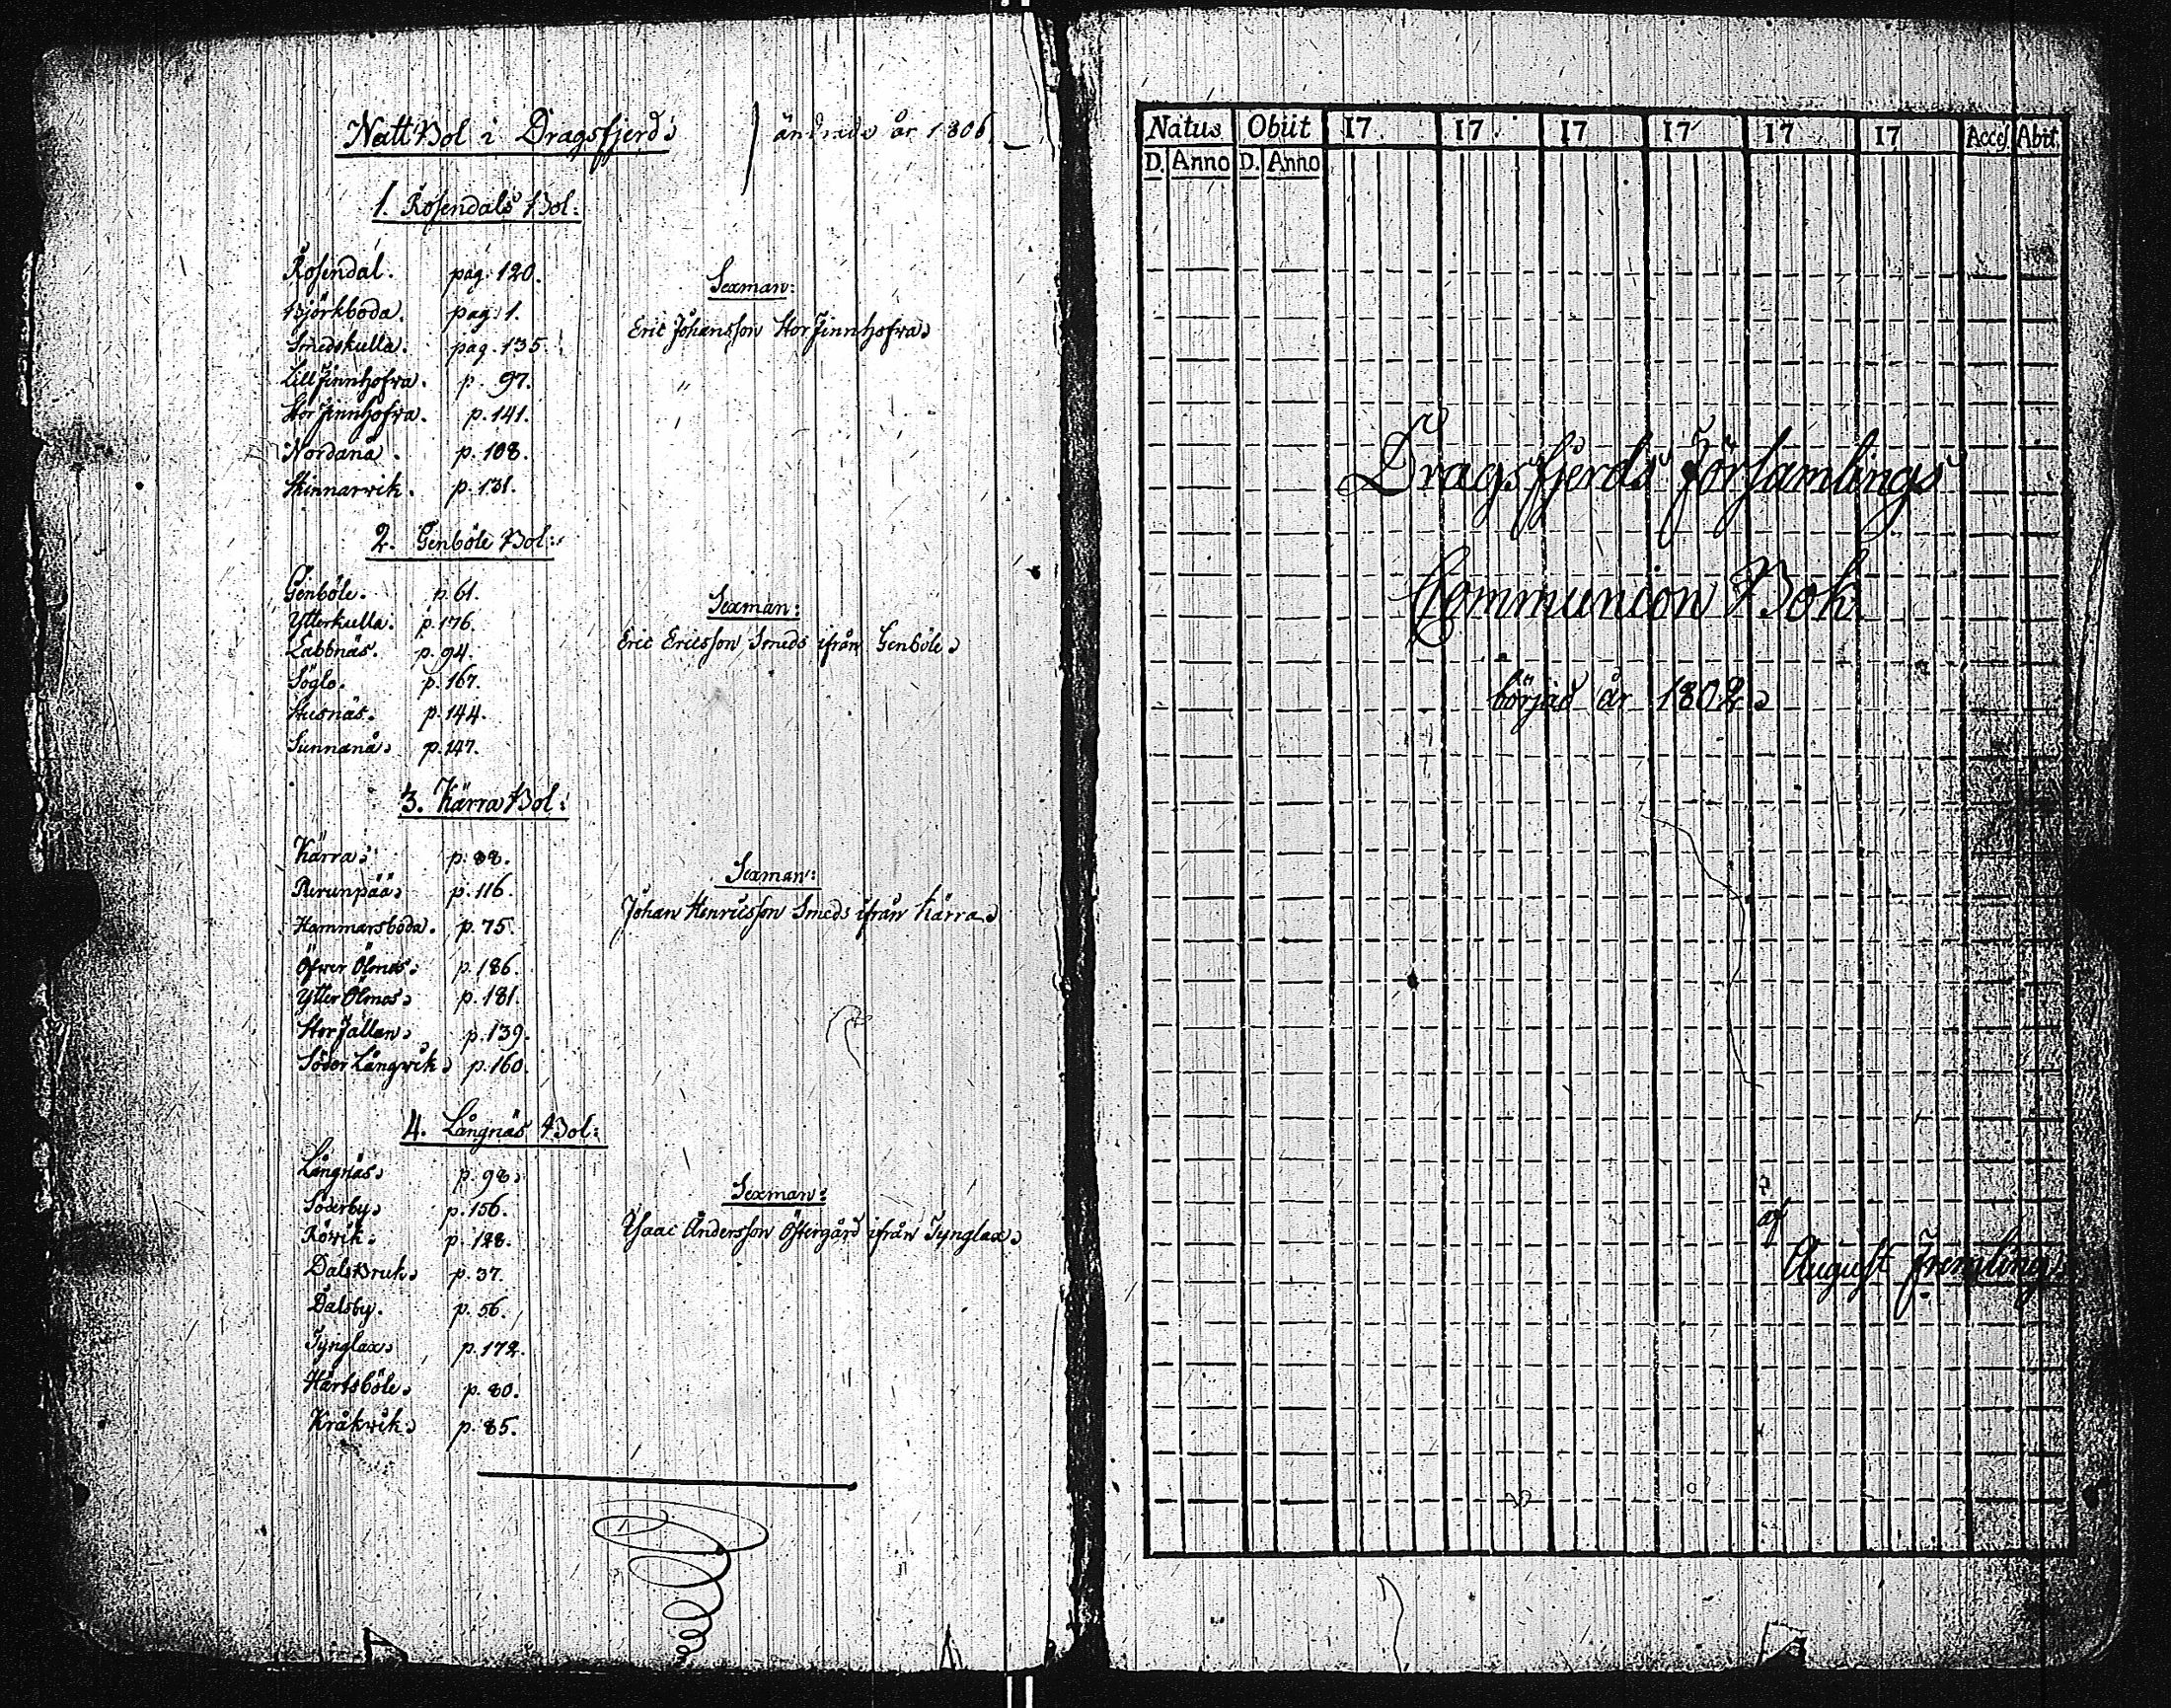 Nattbol i Dragsfjerd
ändrade år 1806
1. Rosendals Bol:
Rosendal. pag. 120.
Björkboda. pag. 1.
Smedskulla. pag. 135.
Lill Finnhofva. p. 97.
Stor Finnhofva. p. 141.
Nordanå. p. 108.
Skinnarvik. p. 131.
Sexman:
Eric Johansson Stor Finnhofva
2. Genböle Bol:
Genböle. p. 61.
Ytterkulla. p. 176.
Labbnäs. p. 94.
Söglo. p. 167.
Husnäs. p. 144.
Sunnanå p. 147.
Sexman:
Eric Ericsson Smeds ifrån Genböle
3. Kärra Bol:
Kärra p. 88.
Purunpää p. 116.
Hammarsboda. p. 75.
Öfver Ölmos p. 186.
Ytter Ölmos p. 181.
Stor Jällan p. 139.
Söder Långvik p. 160.
Sexman:
Johan Henricsson Smeds ifrån Kärra
4. Långnäs Bol:
Långnäs p. 98
Söderby p. 156.
Rövik. p. 128.
Dals Bruk p. 37.
Dalsby. p. 56.
Tynglax p. 172.
Hertsböle p. 80.
Kråkvik p. 85.
Sexman:
Ysaac Andersson Östergård ifrån Tynglax
Natus Obiit 17 17 17 17 17 17 Acces. Abit.
D. Anno D. Anno
Dragsfjerds Församlings
Communion Bok
börjad år 1802
af
August Fremling